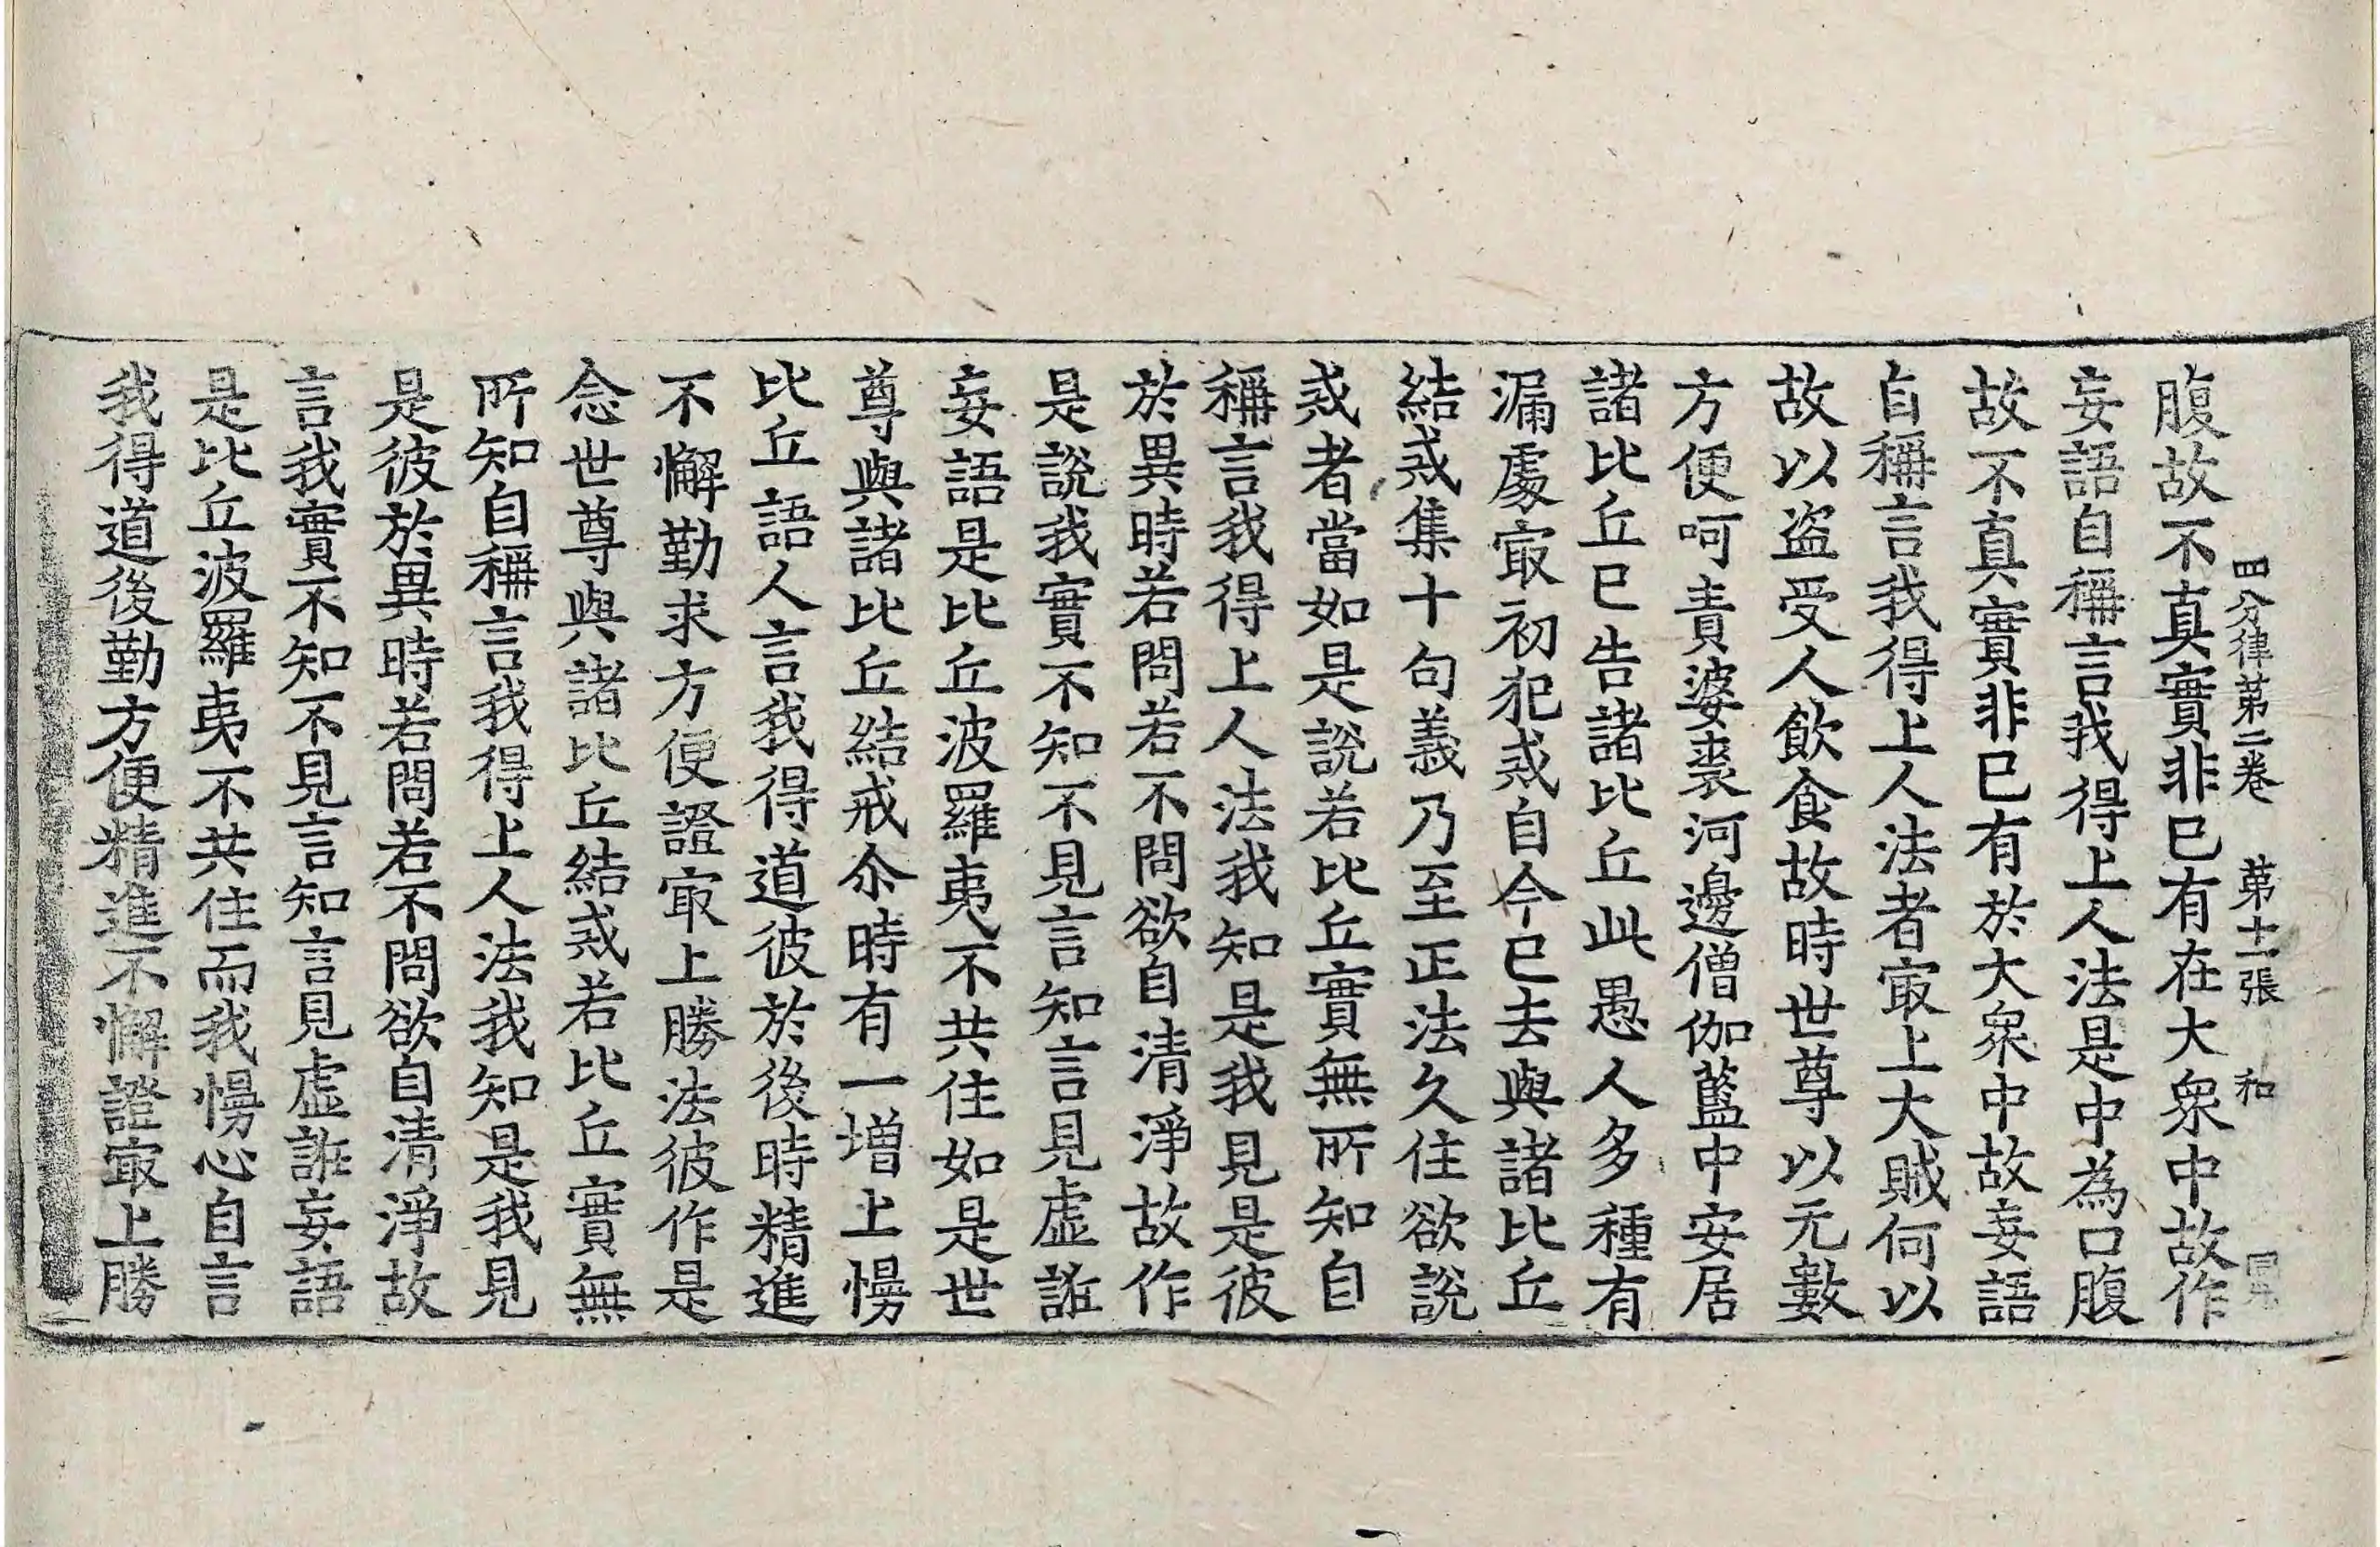 四分律第二卷 第十一張 和
腹故不真實非巳有在大衆中故作
妄語自稱言我得上人法是中為口腹
故不真實非巳有於大衆中故妄語
自稱言我得上人法者㝡上大賊何以
故以盗受人飲食故時世尊以无數
方便呵責婆裘河邊僧伽藍中安居
諸比丘巳告諸比丘此愚人多種有
漏處㝡初犯戒自今巳去與諸比丘
結戒集十句義乃至正法久住欲說
戒者當如是說若比丘實無所知自
稱言我得上人法我知是我見是彼
於異時若問若不問欲自清淨故作
是說我實不知不見言知言見虛誑
妄語是比丘波羅夷不共住如是世
尊與諸比丘結戒尒時有一增上慢
比丘語人言我得道彼於後時精進
不懈勤求方便證㝡上勝法彼作是
念世尊與諸比丘結戒若比丘實無
所知自稱言我得上人法我知是我見
是彼於異時若問若不問欲自清淨故
言我實不知不見言知言見虛誑妄語
是比丘波羅夷不共住而我慢心自言
我得道後勤方便精進不懈證㝡上勝